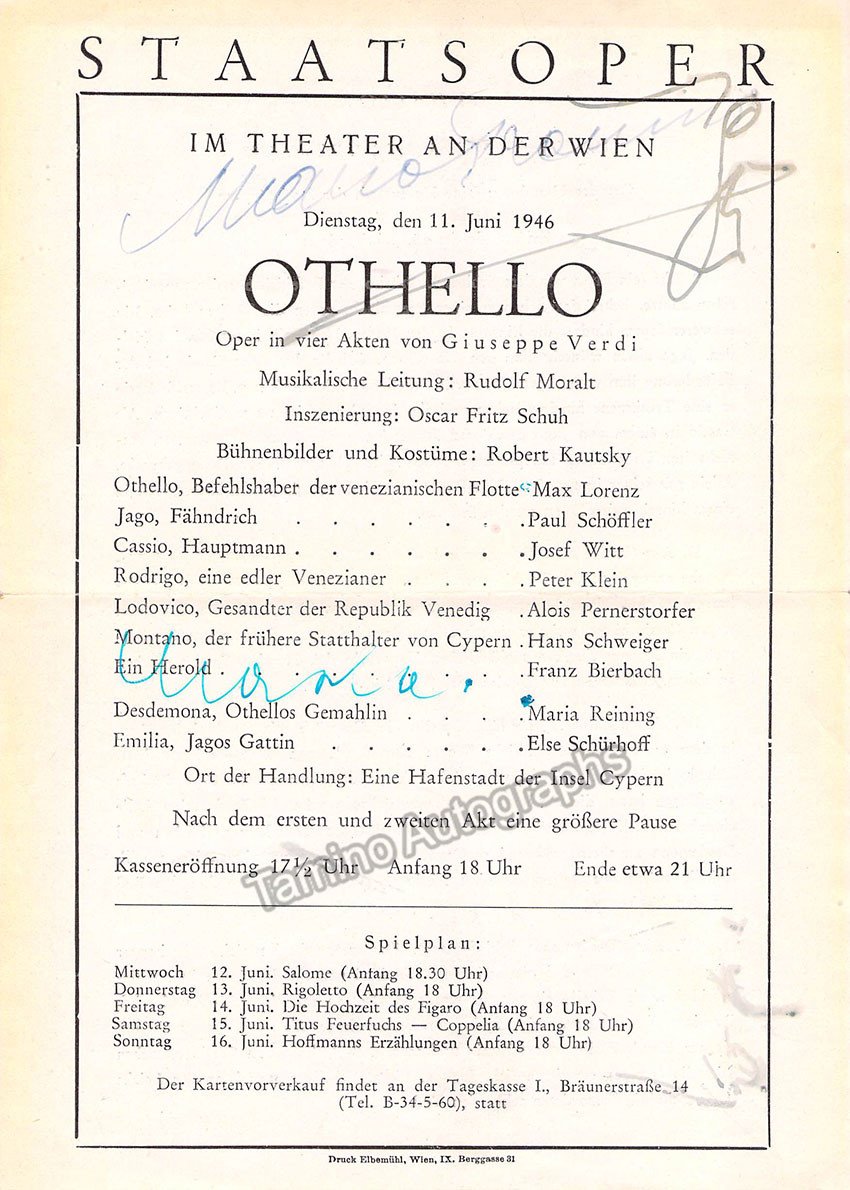 STAATSOPER
IM THEATER AN DER WIEN
Dienstag, den 11. Juni 1946
OTHELLO
Oper in vier Akten von Giuseppe Verdi
Musikalische Leitung: Rudolf Moralt
Inszenierung: Oscar Fritz Schuh
Bühnenbilder und Kostüme: Robert Kautsky
Othello, Befehlshaber der venezianischen Flotte Max Lorenz
Jago, Fähndrich . . . . . . . Paul Schöffler
Cassio, Hauptmann . . . . . . . Josef Witt
Rodrigo, eine edler Venezianer . . . . Peter Klein
Lodovico, Gesandter der Republik Venedig . Alois Pernerstorfer
Montano, der frühere Statthalter von Cypern . Hans Schweiger
Ein Herold . . . . . . . . . Franz Bierbach
Desdemona, Othellos Gemahlin . . . . Maria Reining
Emilia, Jagos Gattin . . . . . . Else Schürhoff
Ort der Handlung: Eine Hafenstadt der Insel Cypern
Nach dem ersten und zweiten Akt eine größere Pause
Kasseneröffnung 17½ Uhr Anfang 18 Uhr Ende etwa 21 Uhr
Tamino Autographs
Spielplan:
Mittwoch 12. Juni. Salome (Anfang 18.30 Uhr)
Donnerstag 13. Juni. Rigoletto (Anfang 18 Uhr)
Freitag 14. Juni. Die Hochzeit des Figaro (Anfang 18 Uhr)
Samstag 15. Juni. Titus Feuerfuchs — Coppelia (Anfang 18 Uhr)
Sonntag 16. Juni. Hoffmanns Erzählungen (Anfang 18 Uhr)
Der Kartenvorverkauf findet an der Tageskasse I., Bräunerstraße 14
(Tel. B-34-5-60), statt
Druck Elbemühl, Wien, IX. Berggasse 31